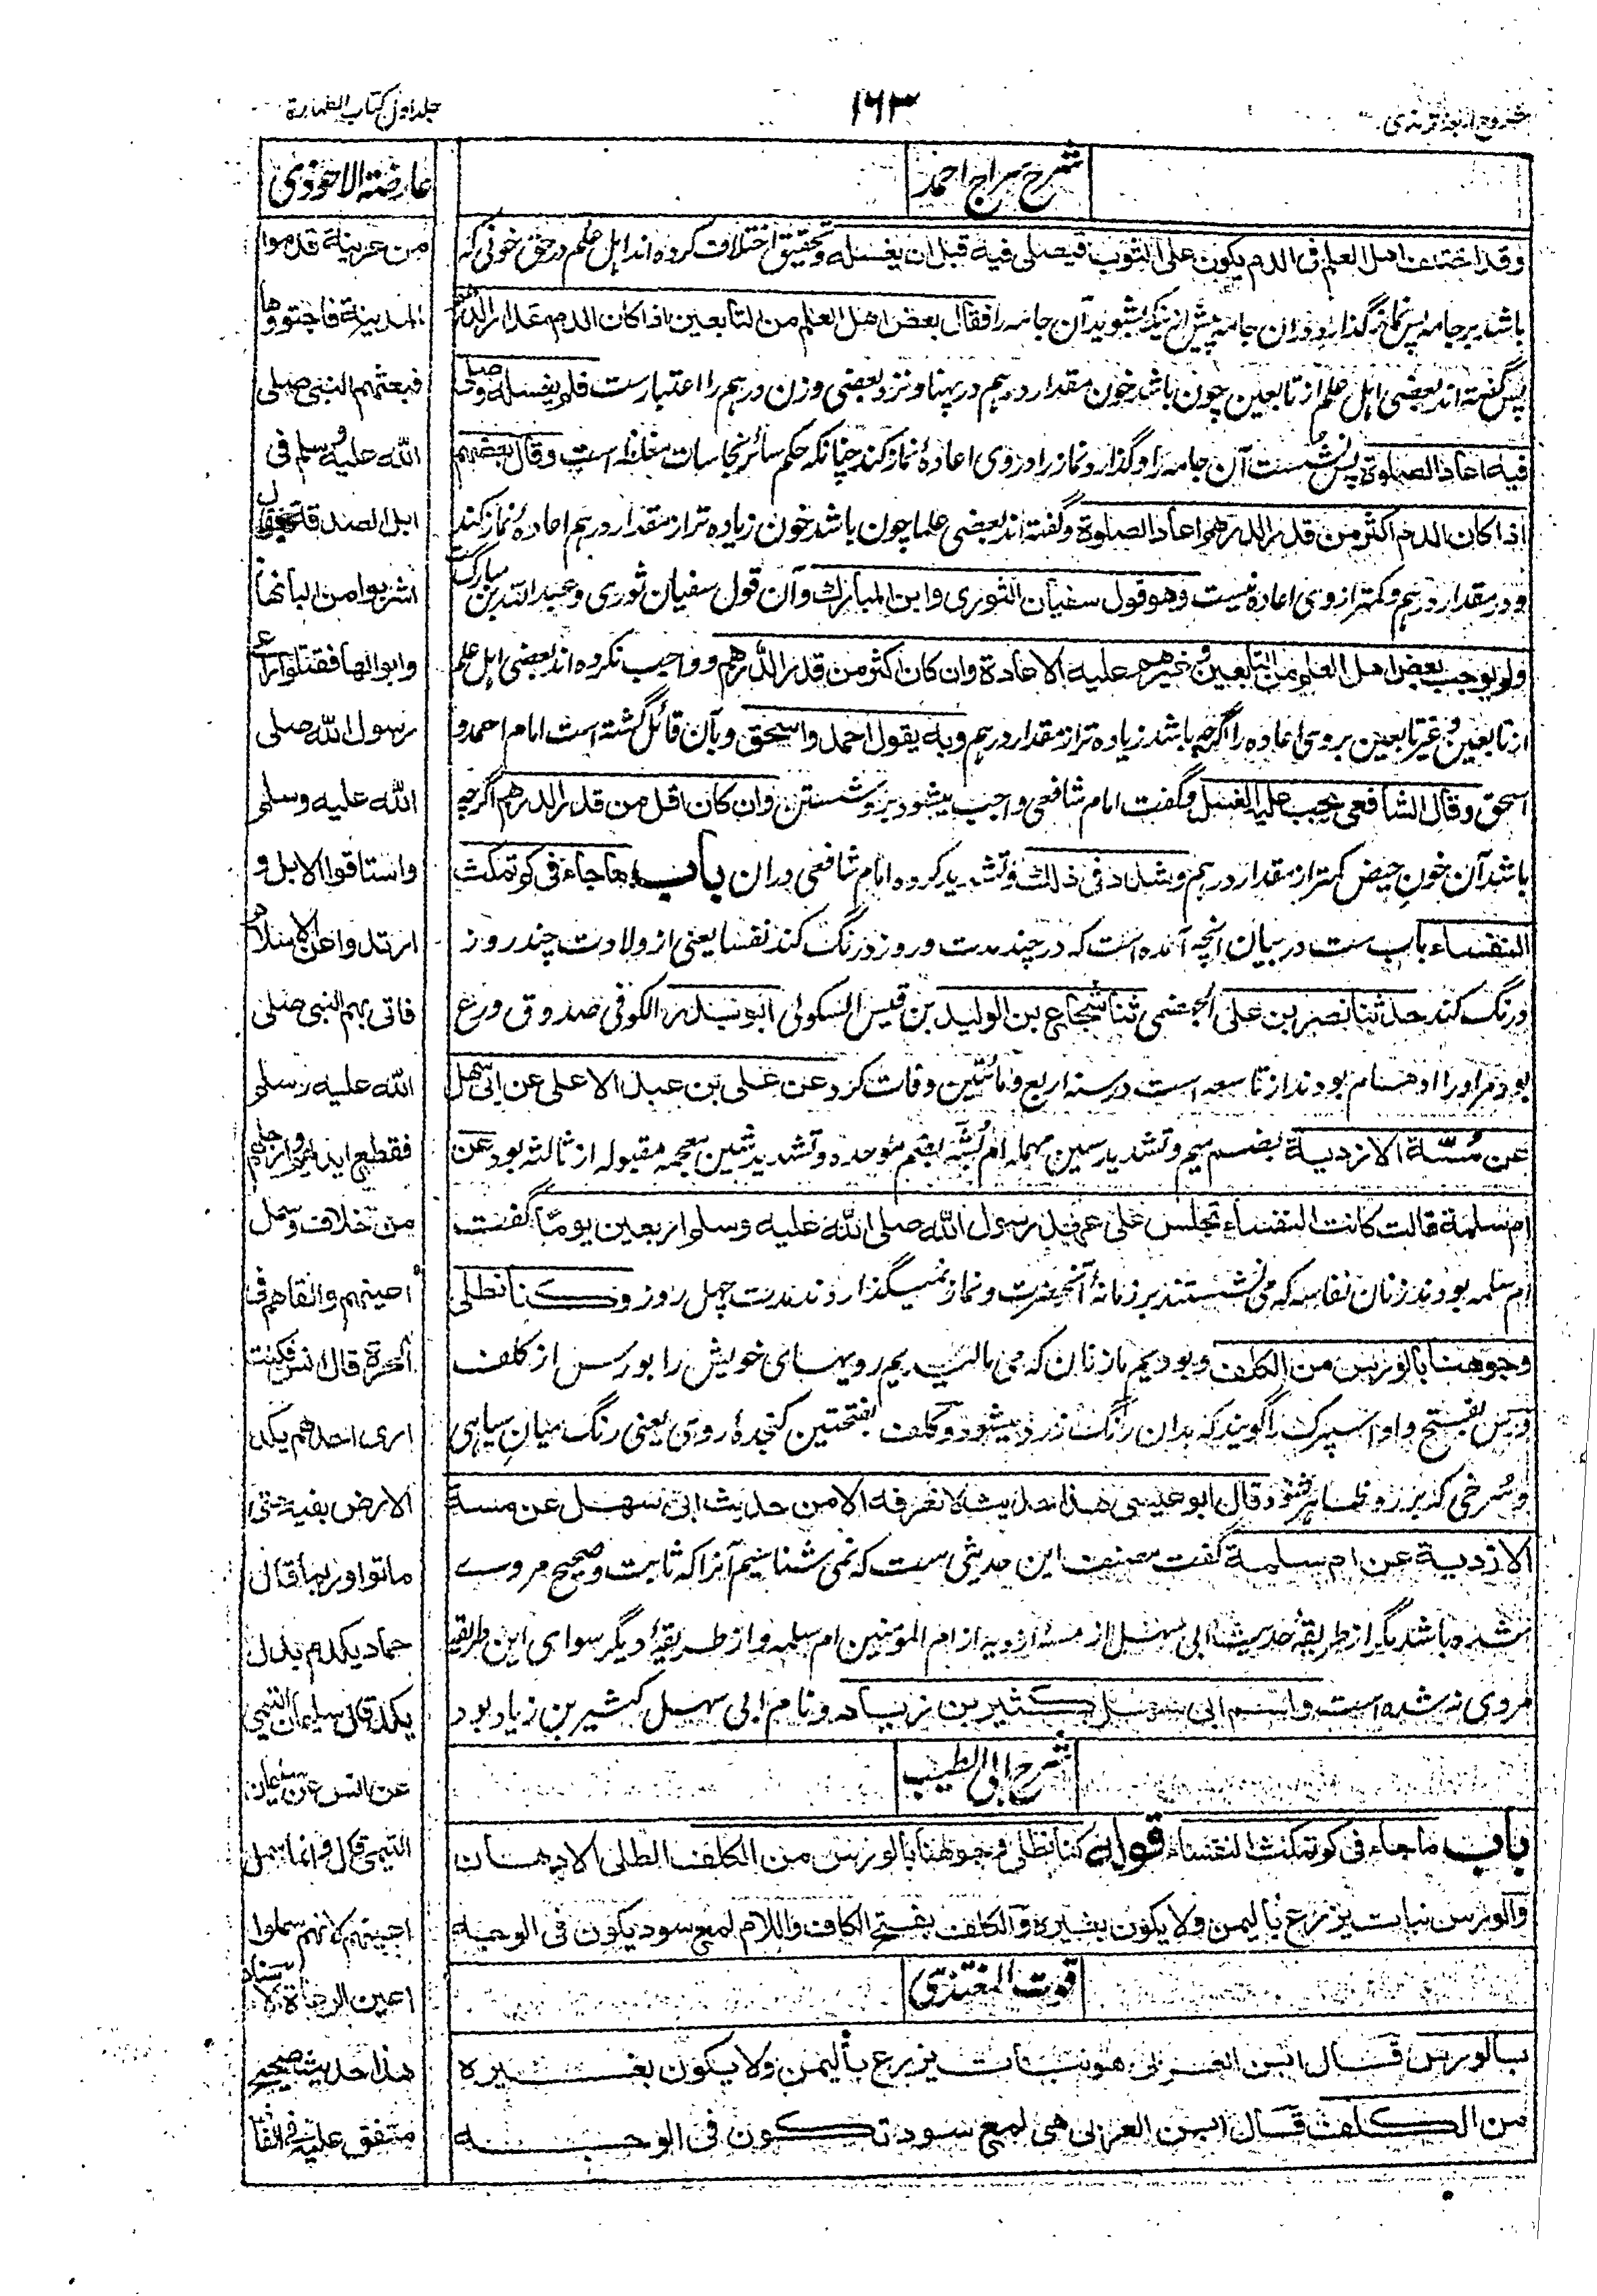 شروح اربعه ترمذی
۱۶۳
جلد اول کتاب الطهارة
شرح سراج احمد
وقد اختلف اهل العلم فی الدم یکون علی الثوب فیصلی فیه قبل ان یغسله وتحقیق اختلاف کرده اند اہل علم در حق خونی که
باشد بر جامه پس نماز گذارد دران جامه پیش از نیکه بشوید آن جامه را فقال بعض اهل العلم من التابعین اذا کان الدم مقدار الدرهم
پس گفته اند بعضی اہل علم از تابعین چون باشد خون مقدار درہم در پہنا ونزد بعضی وزن درہم را اعتبار ست فلم یغسله وصلی
فیه اعاد الصلوة پس نشست آن جامه را وگذارد نماز را دروی اعادۂ نماز کند چنانکه حکم سائر نجاسات مغلظه است وقال بعضهم
اذا کان الدم اکثر من قدر الدرهم اعاد الصلوة وگفته اند بعضی علما چون باشد خون زیاده تر از مقدار درہم اعادۂ نماز کند
ودر مقدار درہم وکمتر ازوی اعاده نیست وهو قول سفیان الثوری وابن المبارك وآن قول سفیان ثوری وعبدالله بن مبارک ست
ولم یوجب بعض اهل العلم من التابعین وغیرهم علیه الاعادة وان کان اکثر من قدر الدرهم وواجب نکرده اند بعضی اہل علم
از تابعین وغیر تابعین بروی اعاده را اگرچه باشد زیاده تر از مقدار درہم وبه یقول احمد واسحق وبآن قائل گشته است امام احمد و
اسحق وقال الشافعی یجب علیه الغسل وگفت امام شافعی واجب میشود برو شستن وان کان اقل من قدر الدرهم اگرچه
باشد آن خون حیض کمتر از مقدار درہم وشدد فی ذلك وتشدید کرده امام شافعی دران باب ما جاء فی کم تمکث
النفساء باب ست در بیان انچه آمده است که در چند مدت وروز درنگ کند نفسا یعنی از ولادت چند روز
درنگ کند حدثنا نصر بن علی الجهضمی ثنا شجاع بن الولید بن قیس السکونی ابو بدر الکوفی صدوق ورع
بود مراورا اوهام بودند از تاسعه است در سنه اربع ومائتین وفات کرد عن علی بن عبد الاعلی عن ابی سهل
عن مُسّة الازدیة بضم میم وتشدید سین مہمله ام بُسَّه بضم موحده وتشدید شین معجمه مقبوله از ثالثه بود عن
ام سلمة قالت کانت النفساء تجلس علی عهد رسول الله صلی الله علیه وسلم اربعین یوماً گفت
ام سلمه بودند زنان نفاسه که می نشستند بر زمانۂ آنحضرت ونماز نمیگذاردند مدت چہل روز وکنا نطلی
وجوهنا بالورس من الکلف وبودیم ما زنان که می مالیدیم رویہای خویش را بورس از کلف
ورس بفتح واو اسپرک را گویند که بدان رنگ زرد میشود وکلف بفتحتین کنجدۀ روی یعنی رنگ میان سیاہی
وسُرخی که بر رو ظاہر شود قال ابو عیسی هذا حدیث لا نعرفه الا من حدیث ابی سهل عن مسة
الازدیة عن ام سلمة گفت مصنف این حدیثی ست که نمی شناسیم آنرا که ثابت وصحیح مروے
نشده باشد مگر از طریقۂ حدیث ابی سہل از مسۂ ازدیه از ام المومنین ام سلمه واز طریقۂ دیگر سوای این طریقه
مروی نه شده است واسم ابی سهل کثیر بن زیاد ونام ابی سہل کثیر بن زیاد بود
شرح ابی الطیب
باب ما جاء فی کم تمکث النفساء قوله کنا نطلی وجوهنا بالورس من الکلف الطلی الادهان
والورس نبات یزرع بالیمن ولا یکون بغیره والکلف بفتح الکاف واللام لمع سود یکون فی الوجه
قوت المغتذی
بالورس قال ابن العربی هو نبات یزرع بالیمن ولا یکون بغیره
من الکلف قال ابن العربی هی لمع سود تکون فی الوجه
عارضة الاحوذی
من عرینة قدموا
المدینة فاجتووها
فبعثهم النبی صلی
الله علیه وسلم فی
ابل الصدقة وقال
اشربوا من البانها
وابوالها فقتلوا راعی
رسول الله صلی
الله علیه وسلم
واستاقوا الابل و
ارتدوا عن الاسلام
فاتی بهم النبی صلی
الله علیه وسلم
فقطع ایدیهم وارجلهم
من خلاف وسمل
اعینهم والقاهم فی
الحرة قال انس فکنت
اری احدهم یکد
الارض بفیه حتی
ماتوا وربما قال
حماد یکدم بدل
یکد قال سلیمان التیمی
عن انس
التیمی قال وانما سمل
اعینهم لانهم سملوا
اعین الرعاة
هذا حدیث صحیح
متفق علیه